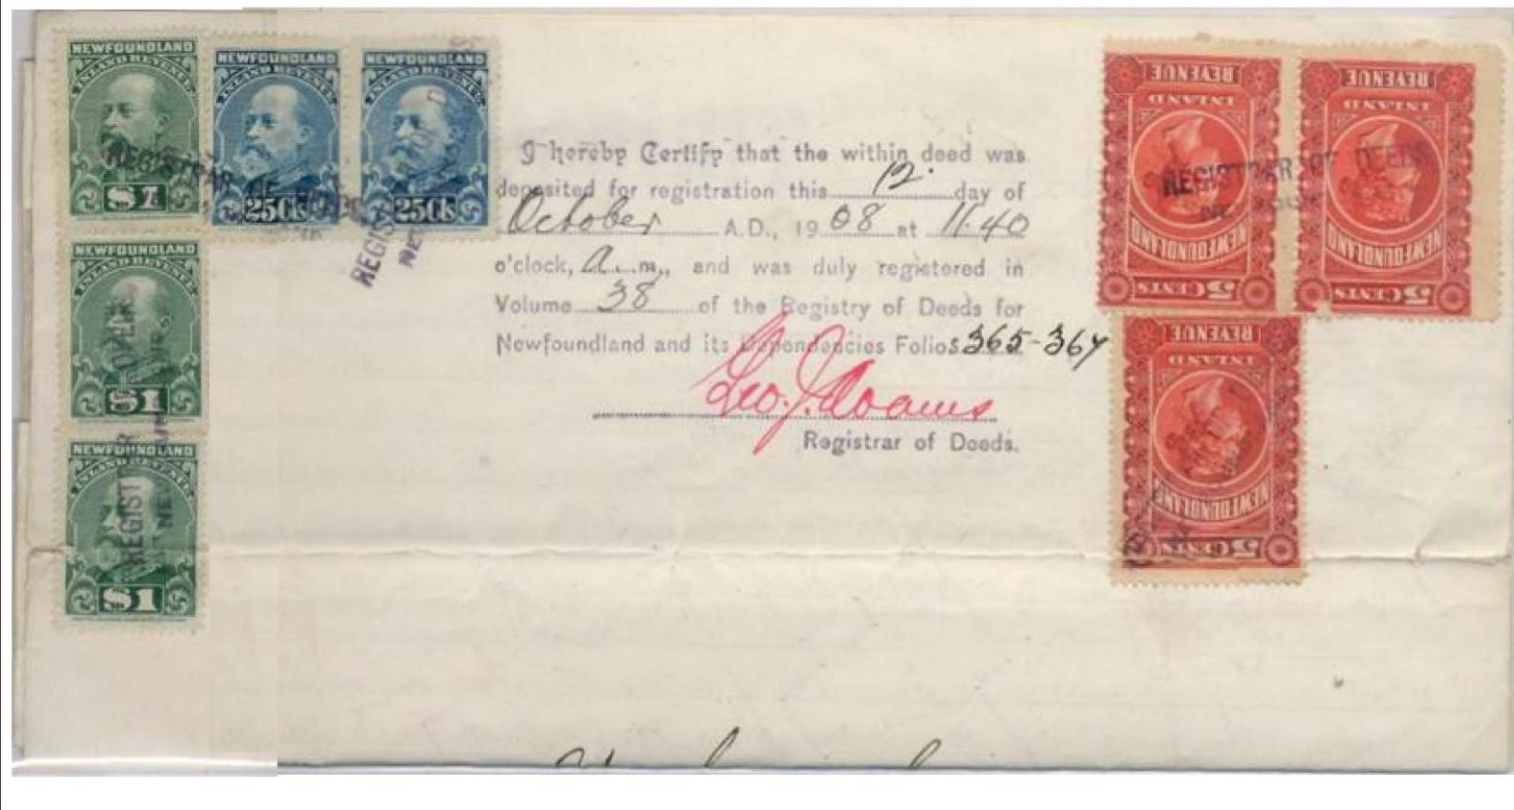 NEWFOUNDLAND
INLAND REVENUE
$1
NEWFOUNDLAND
INLAND REVENUE
25Cts
NEWFOUNDLAND
INLAND REVENUE
25Cts
REGISTRAR OF DEEDS
NEWFOUNDLAND
INLAND REVENUE
$1
NEWFOUNDLAND
INLAND REVENUE
$1
I hereby Certify that the within deed was
deposited for registration this 12. day of
October A.D., 1908 at 11.40
o'clock, a.m., and was duly registered in
Volume 38 of the Registry of Deeds for
Newfoundland and its Dependencies Folios 365-367
Geo. J. Adams
Registrar of Deeds.
REVENUE
INLAND
NEWFOUNDLAND
5 CENTS
REVENUE
INLAND
NEWFOUNDLAND
5 CENTS
REGISTRAR OF DEEDS
REVENUE
INLAND
NEWFOUNDLAND
5 CENTS